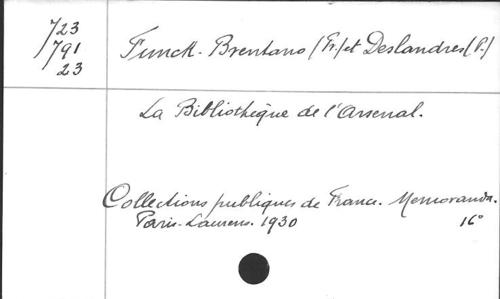 723
791
23
Funck-Brentano (Fr.) et Deslandres (P.)
La Bibliothèque de l'Arsenal.
Collections publiques de France. Memoranda.
Paris-Laurens. 1930 16°